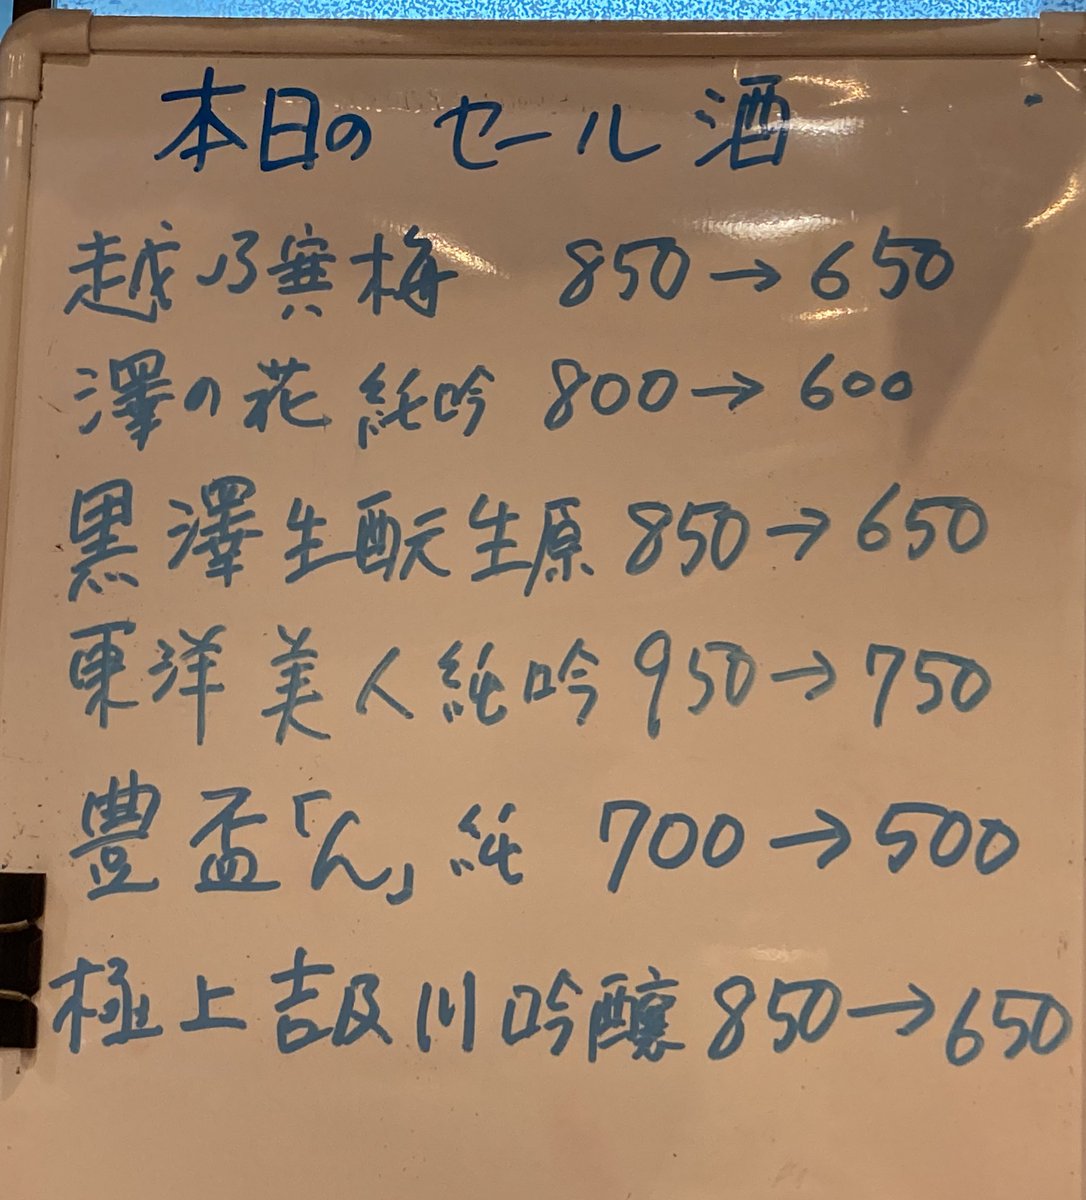 本日の セール酒
越乃寒梅 850→650
澤の花 純吟 800→600
黒澤生酛生原 850→650
東洋美人純吟 950→750
豊盃「ん」純 700→500
極上吉乃川吟醸 850→650